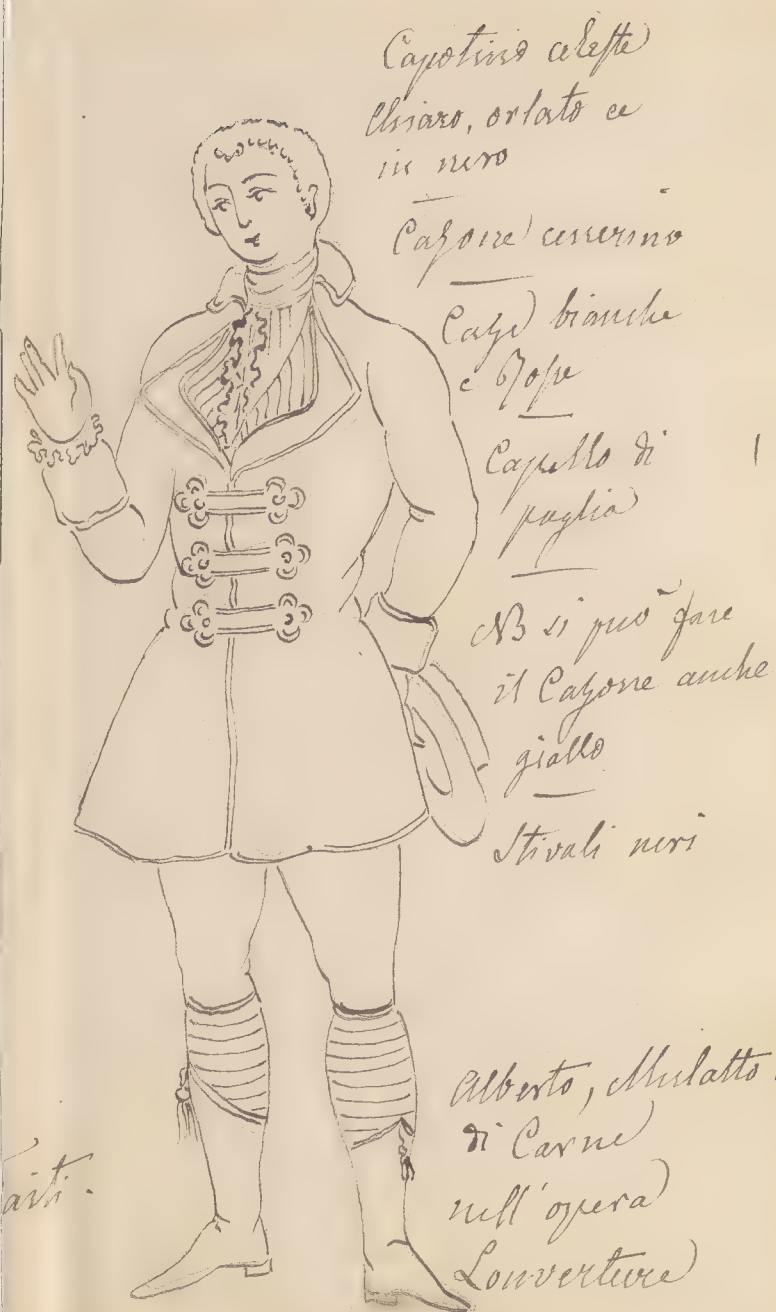 Capotino celeste
Chiaro, orlato
in nero
Cazone
Caze bianche
e Rosse
Capello di
paglia
NB si può fare
il Cazone anche
giallo
Stivali neri
Alberto, Mulatto
di Carne
nell'opera
Louverture
aiti.